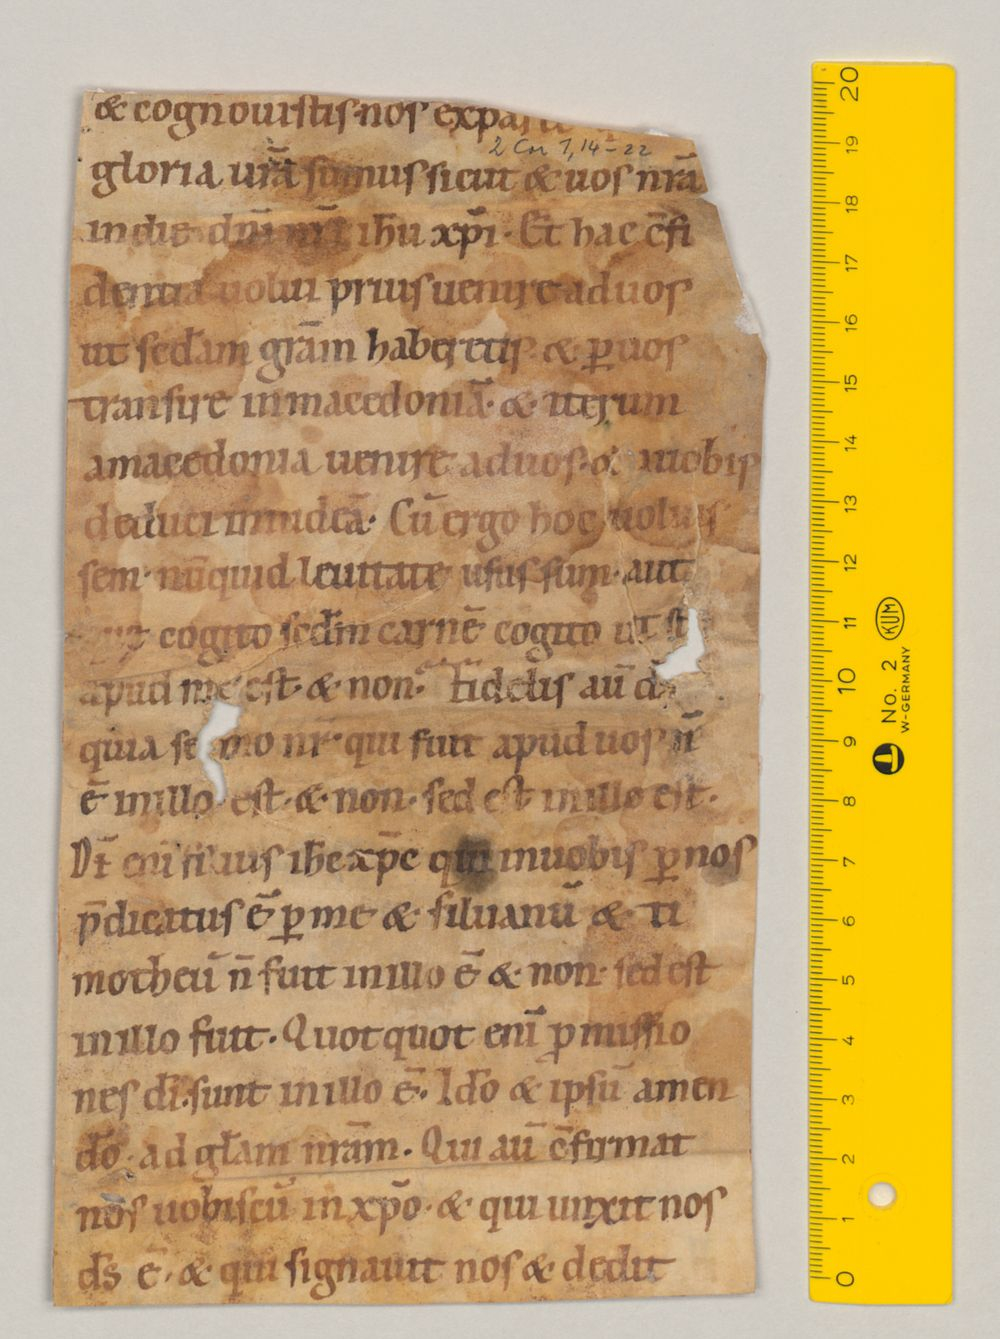 & cognouistis nos expar
2 Cor 1,14-22
gloria ur̄a sumus sicut & uos nr̄a
in die dn̄i nr̄i ih̄u xp̄i· Et hac c̄fi
dentia uolui prius uenire ad uos
ut sedam gr̄am haberetis & ꝑ uos
transire in macedoniā· & iterum
a macedonia uenire ad uos· & a uobis
deduci in iudeā· Cū ergo hoc uoluis
sem· nūquid leuitate usus sum· aut
cogito sedm̄ carnē cogito ut st̄
apud me est· & non· Fidelis au̅ ds̄
quia sermo nr̄ qui fuit apud uos n̄
ē in illo est· & non· sed est in illo est·
Dī eni̅ filius ih̄c xp̄c qui in uobis ꝑ nos
p̄dicatus ē ꝑ me & siluanū & ti
motheū n̄ fuit in illo ē & non· sed est
in illo fuit· Quotquot enī ꝓmissio
nes dī· sunt in illo ē· Ido̅ & ipsū amen
do̅· ad gl̄am nr̄am· Qui au̅ c̄firmat
nos uobiscū in xp̄o· & qui unxit nos
ds̄ ē· & qui signauit nos & dedit
0 1 2 3 4 5 6 7 8 9 10 11 12 13 14 15 16 17 18 19 20
No. 2 KUM
W-GERMANY